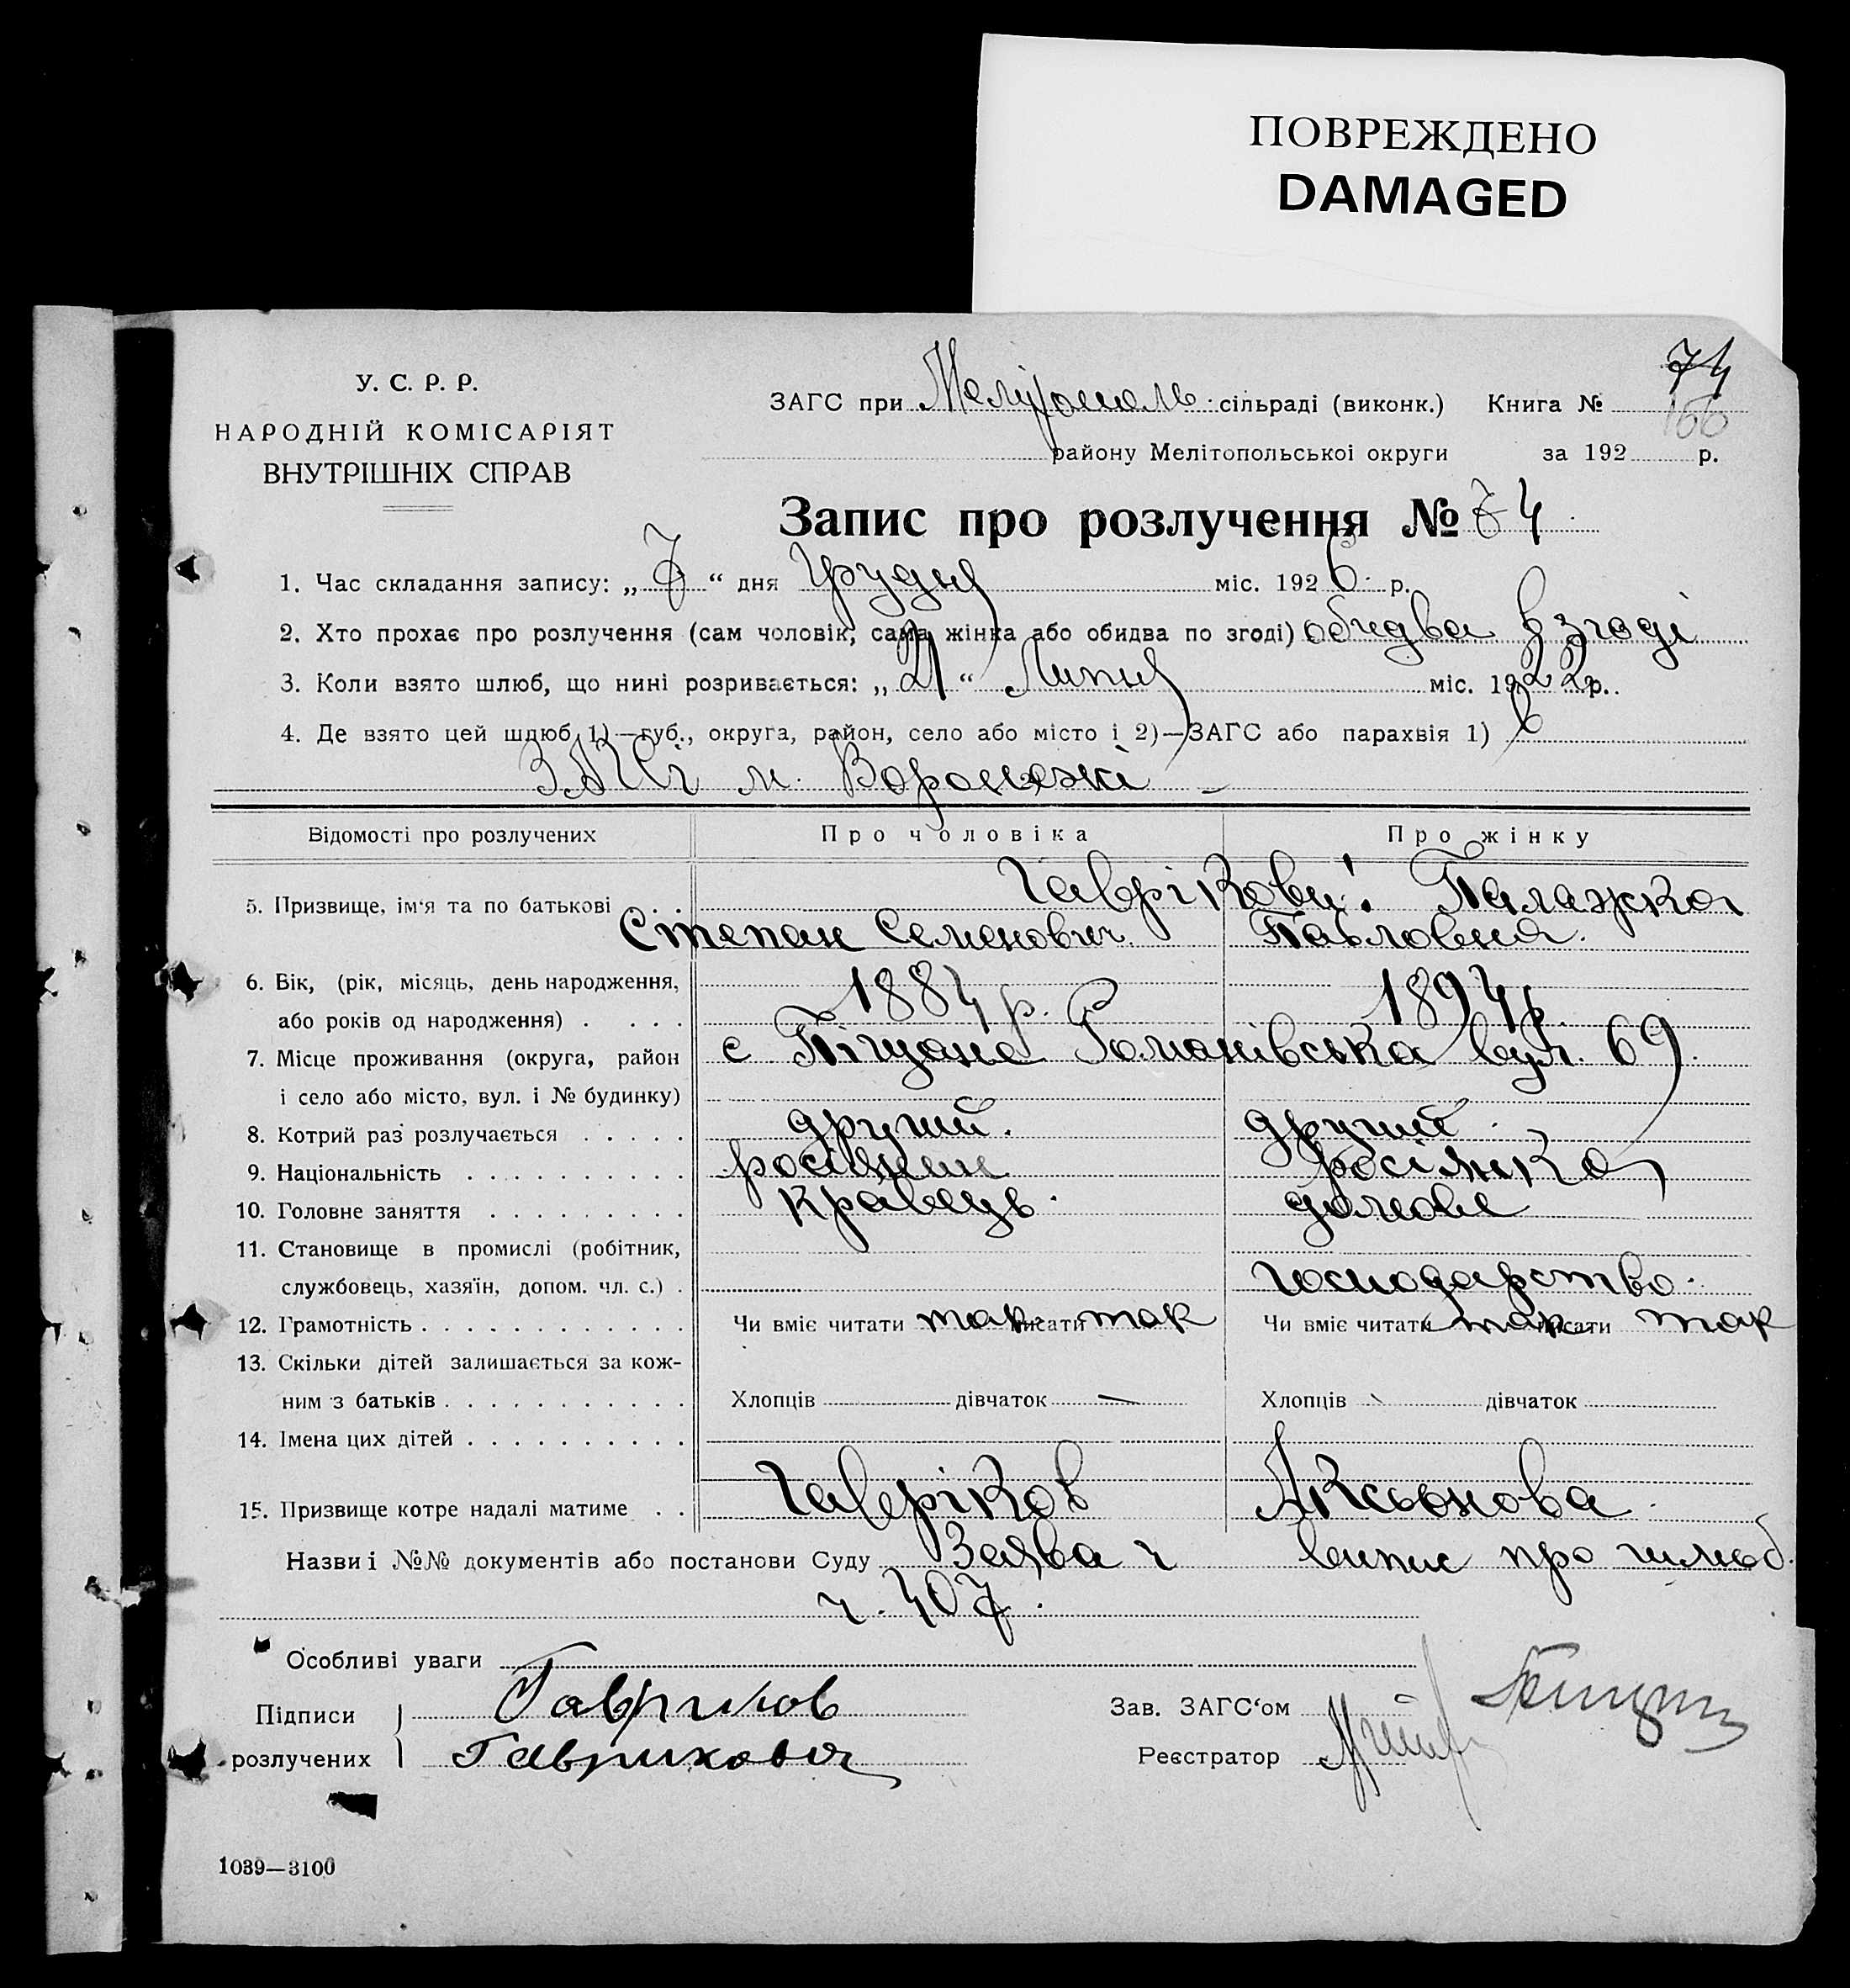 ПОВРЕЖДЕНО
DAMAGED
74
166
У. С. Р. Р.
НАРОДНІЙ КОМІСАРІЯТ
ВНУТРІШНІХ СПРАВ
ЗАГС при Мелітополь сільраді (виконк.) Книга №
району Мелітопольськоі округи за 192 р.
Запис про розлучення № 74
1. Час складання запису: „ 7 “ дня Грудня міс. 1926 р.
2. Хто прохає про розлучення (сам чоловік, сама жінка або обидва по згоді) обидва в згоді
3. Коли взято шлюб, що нині розривається: „ 21 “ Липня міс. 1922 р.
4. Де взято цей шлюб 1)—губ., округа, район, село або місто і 2)—ЗАГС або парахвія 1) в
ЗАГСі м. Воронежі
Відомості про розлучених Про чоловіка Про жінку
5. Призвище, ім‘я та по батькові Гаврікови: Палажка
Степан Семенович Павловна.
6. Вік, (рік, місяць, день народження, 1884 р. 1894 р.
або років од народження)
7. Місце проживання (округа, район с Піщане Романівська вул. 69.
і село або місто, вул. і № будинку)
8. Котрий раз розлучається другий. другий
9. Національність росіянин росіянка
10. Головне заняття кравець. домове
11. Становище в промислі (робітник,
службовець, хазяїн, допом. чл. с.) господарство.
12. Грамотність Чи вміє читати так писати так Чи вміє читати так писати так
13. Скільки дітей залишається за кож-
ним з батьків Хлопців дівчаток — Хлопців дівчаток
14. Імена цих дітей
15. Призвище котре надалі матиме Гавріков Аксьонова
Назви і №№ документів або постанови Суду Заява і випис про шлюб.
ч. 407.
Особливі уваги
Підписи Гавриков Зав. ЗАГС‘ом
розлучених Гаврикова Реєстратор
1039—3100